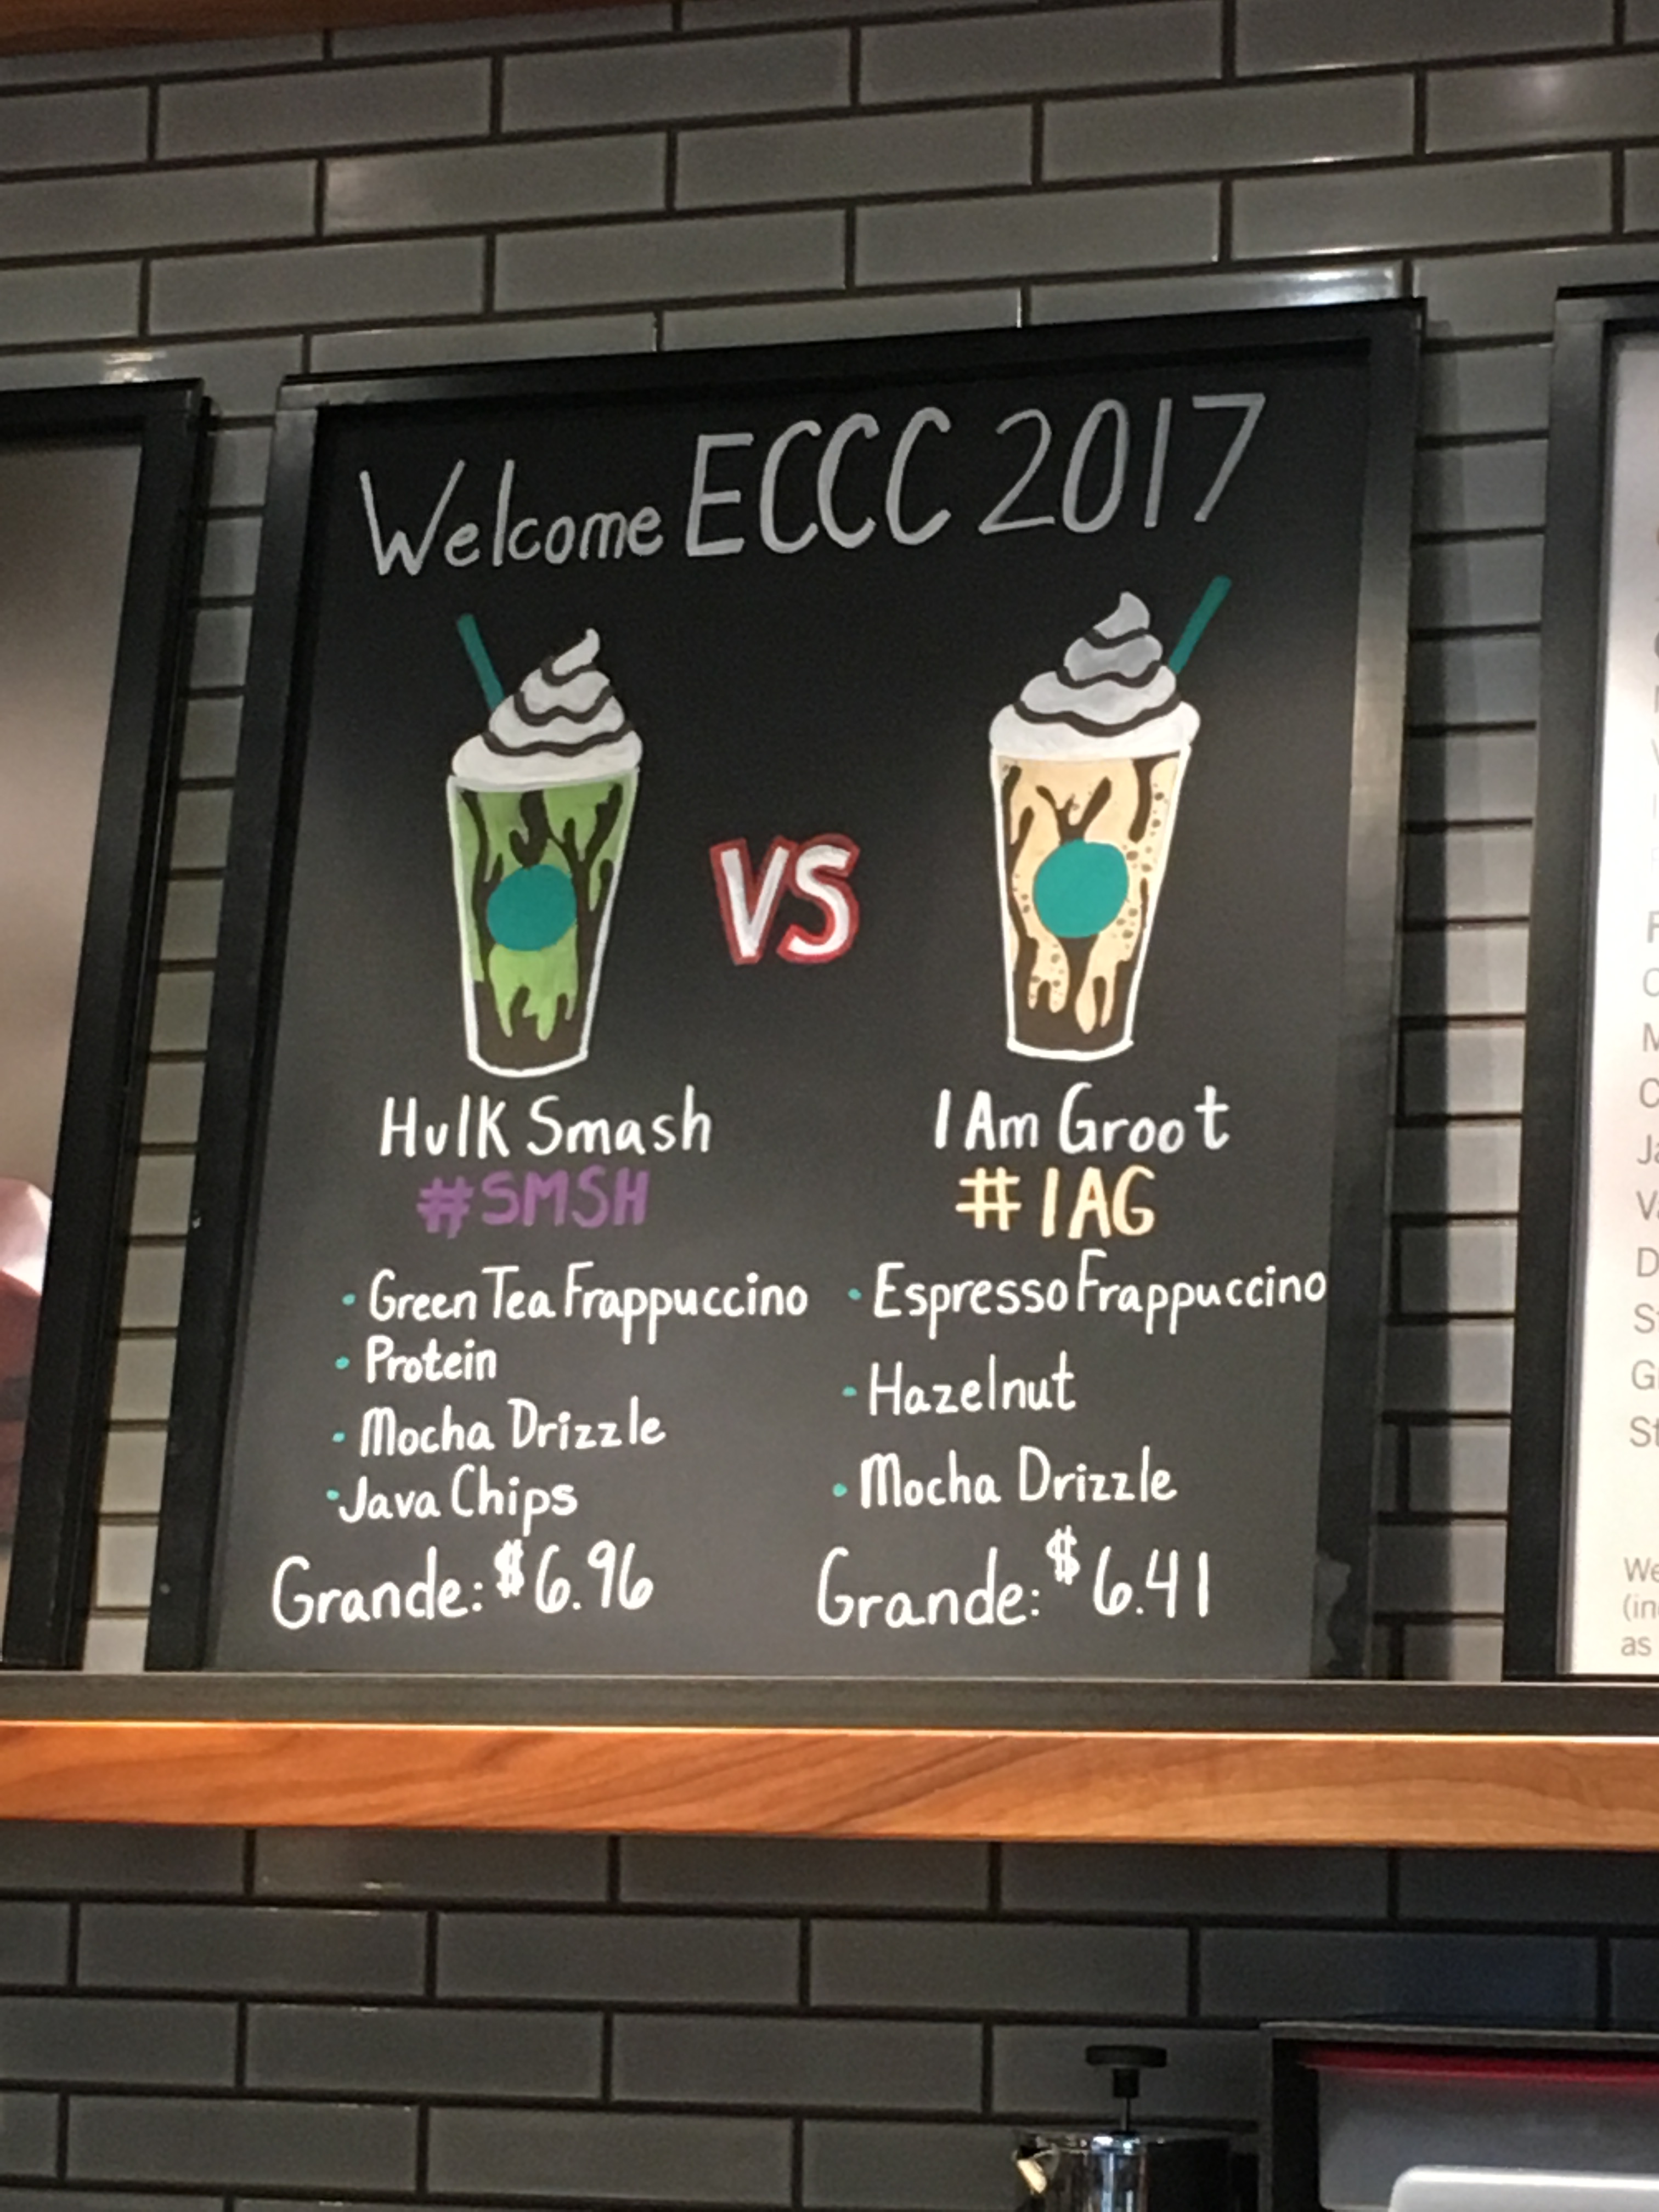 Welcome ECCC 2017
VS
Hulk Smash
#SMSH
• Green Tea Frappuccino
• Protein
• Mocha Drizzle
• Java Chips
Grande: $6.96
I Am Groot
#IAG
• Espresso Frappuccino
• Hazelnut
• Mocha Drizzle
Grande: $6.41
We
(in
as